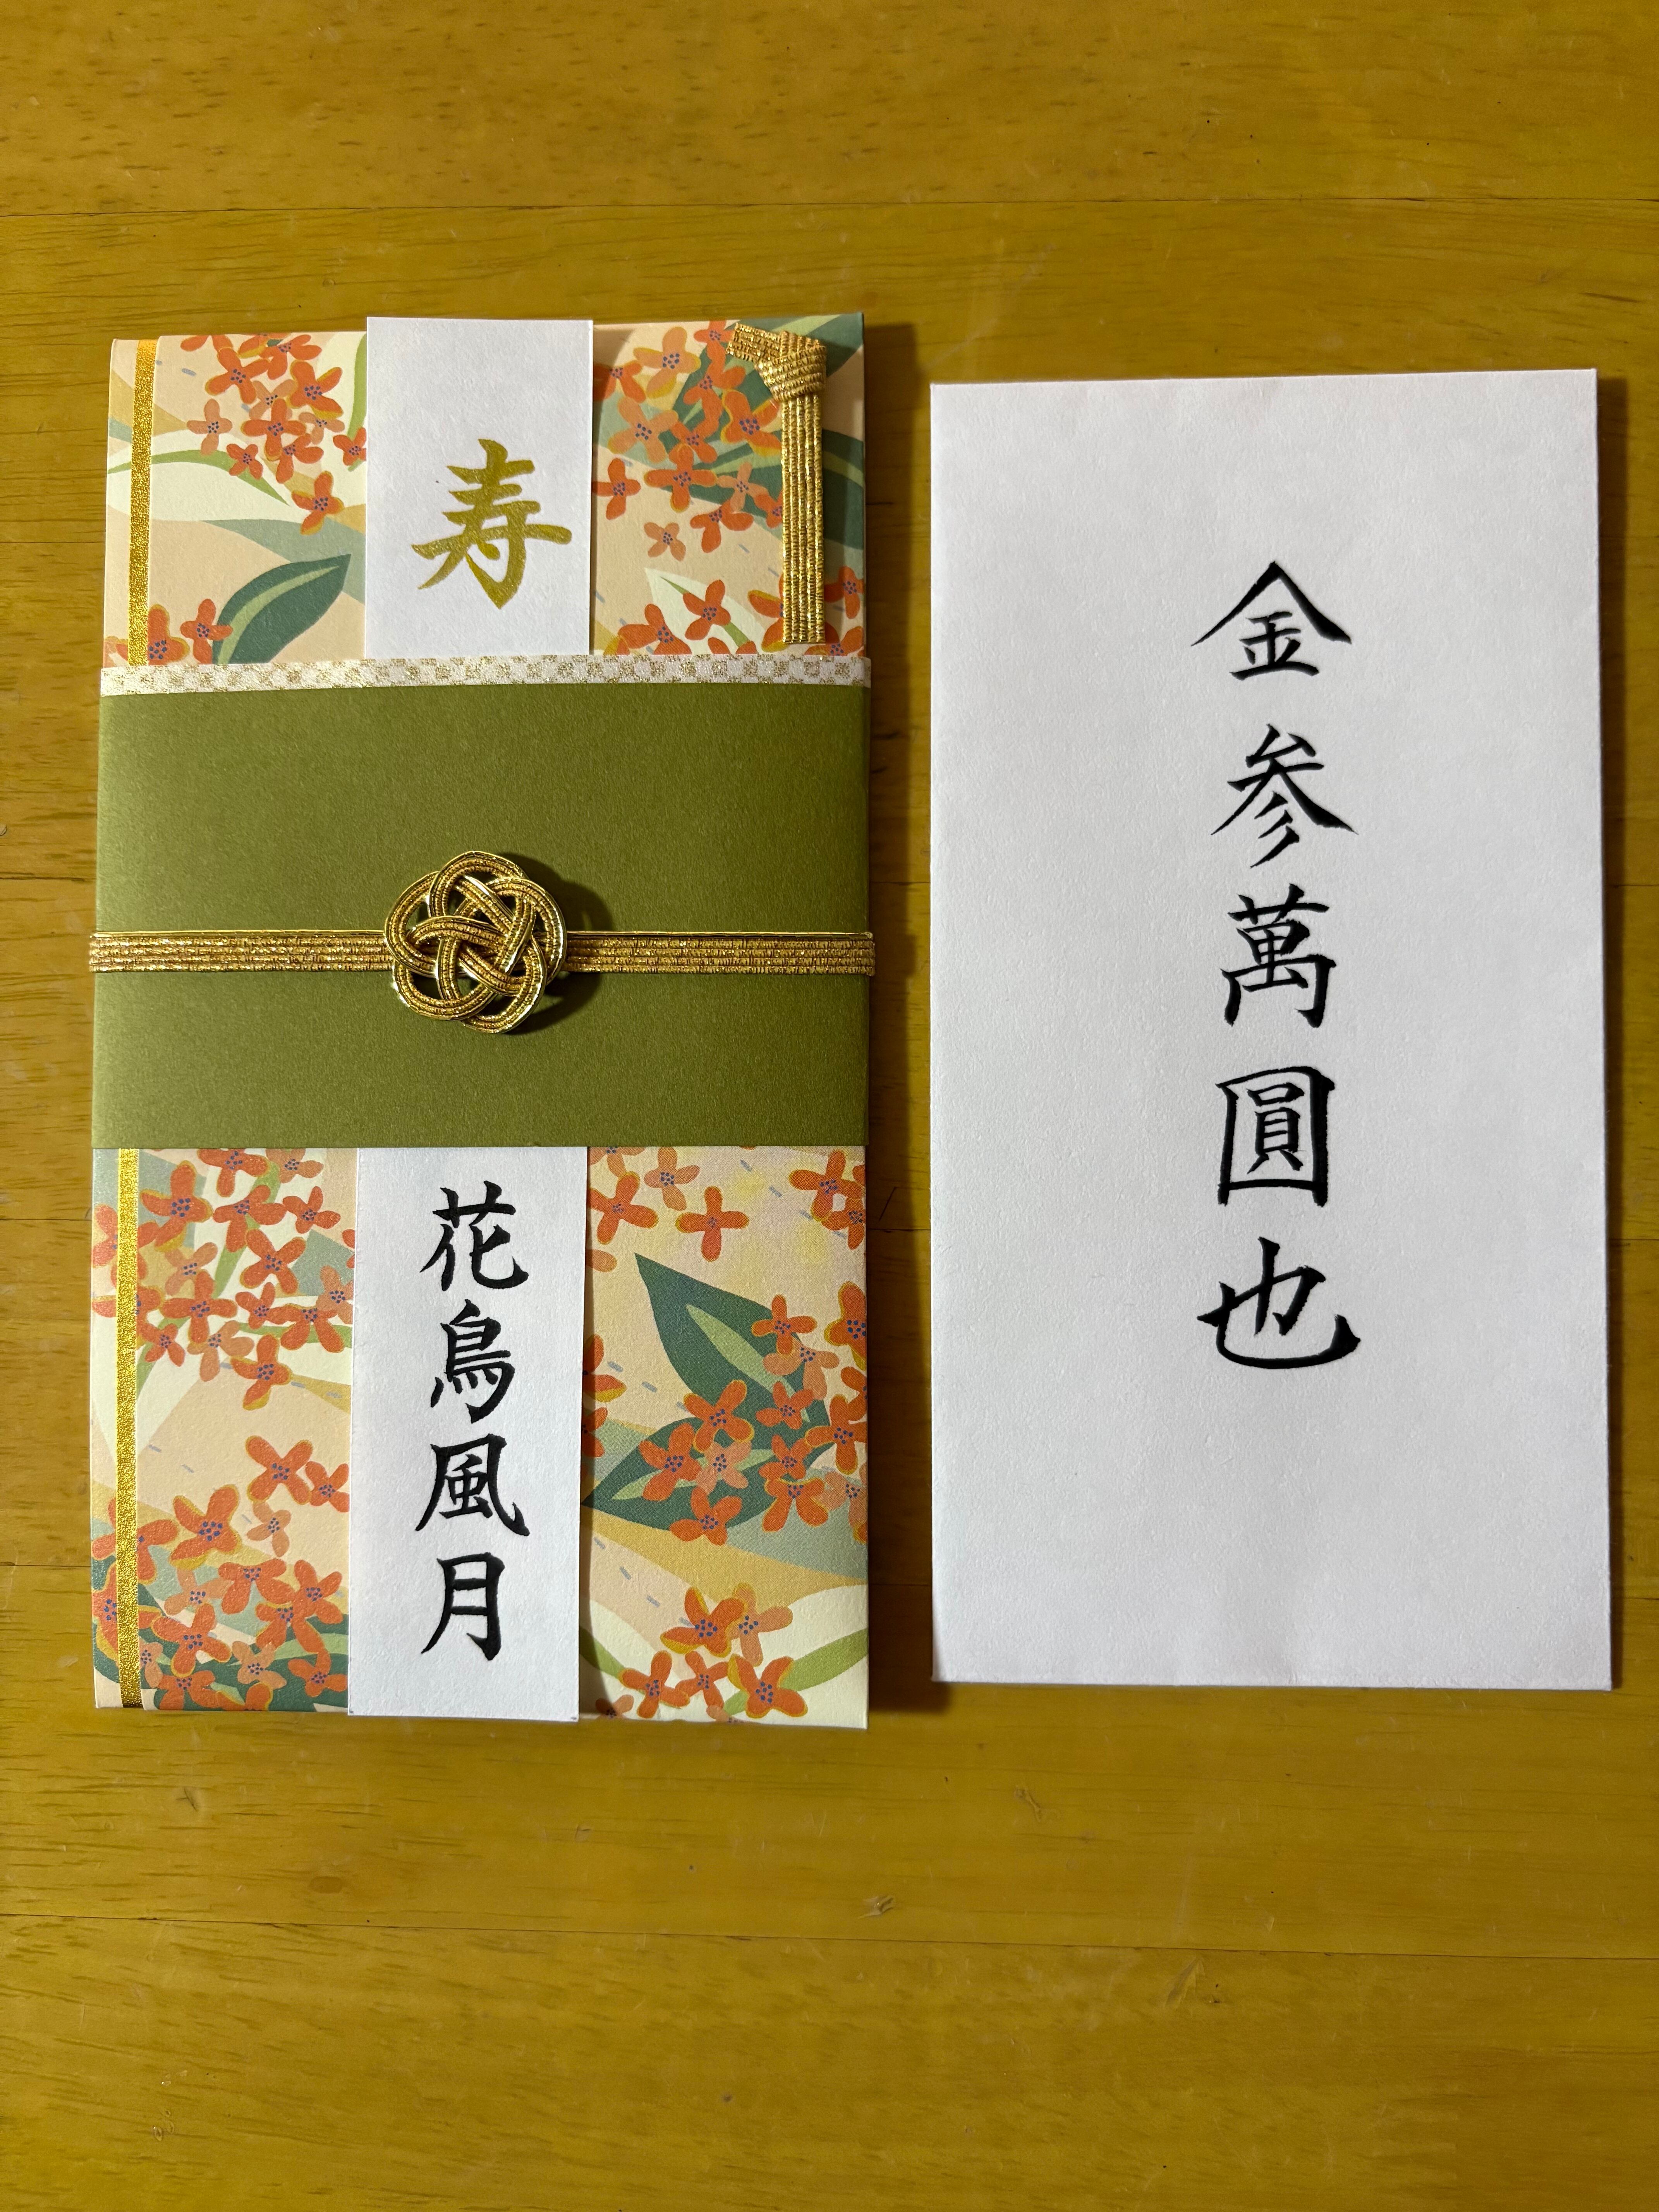 寿
花鳥風月
金参萬圓也